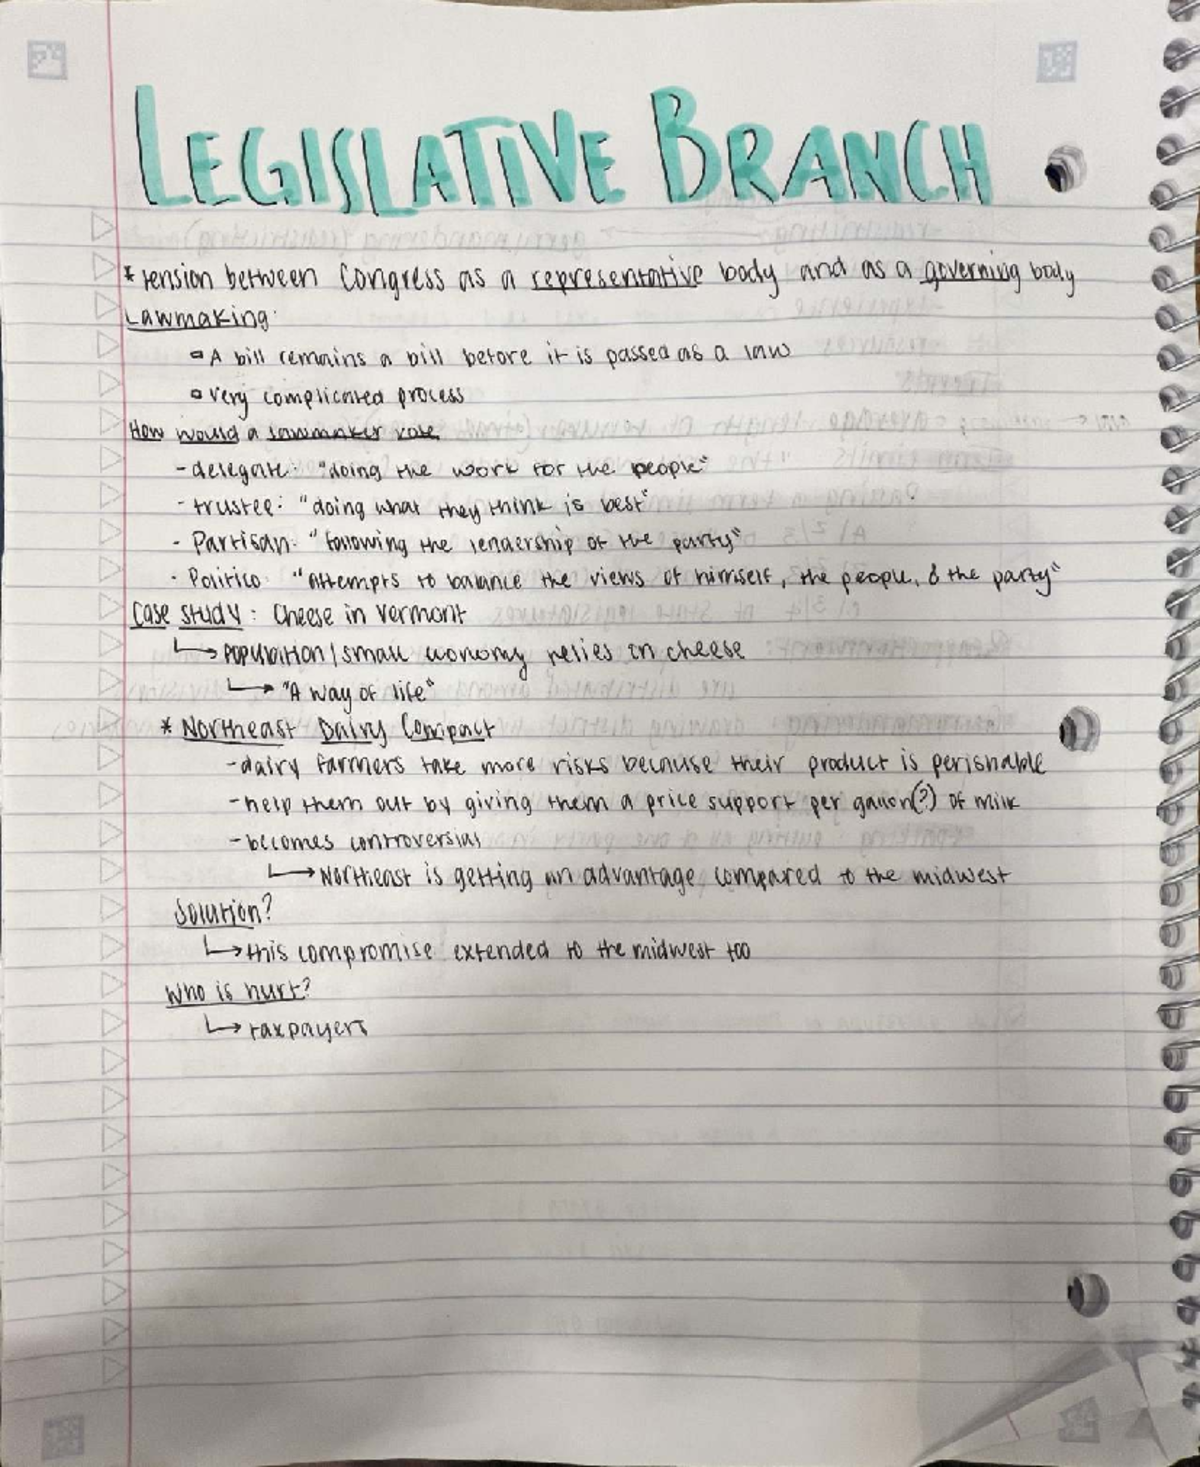 LEGISLATIVE BRANCH
* tension between Congress as a representative body and as a governing body
Lawmaking:
A bill remains a bill before it is passed as a law
very complicated process
How would a lawmaker vote
- delegate: "doing the work for the people"
- trustee: "doing what they think is best"
- Partisan: "following the leadership of the party"
- Politico: "attempts to balance the views of himself, the people, & the party"
Case study: Cheese in Vermont
↳ Population/small economy relies on cheese
↳ "A way of life"
* Northeast Dairy Compact
- dairy farmers take more risks because their product is perishable
- help them out by giving them a price support per gallon(?) of milk
- becomes controversial
↳ Northeast is getting an advantage compared to the midwest
Solution?
↳ this compromise extended to the midwest too
Who is hurt?
↳ taxpayers